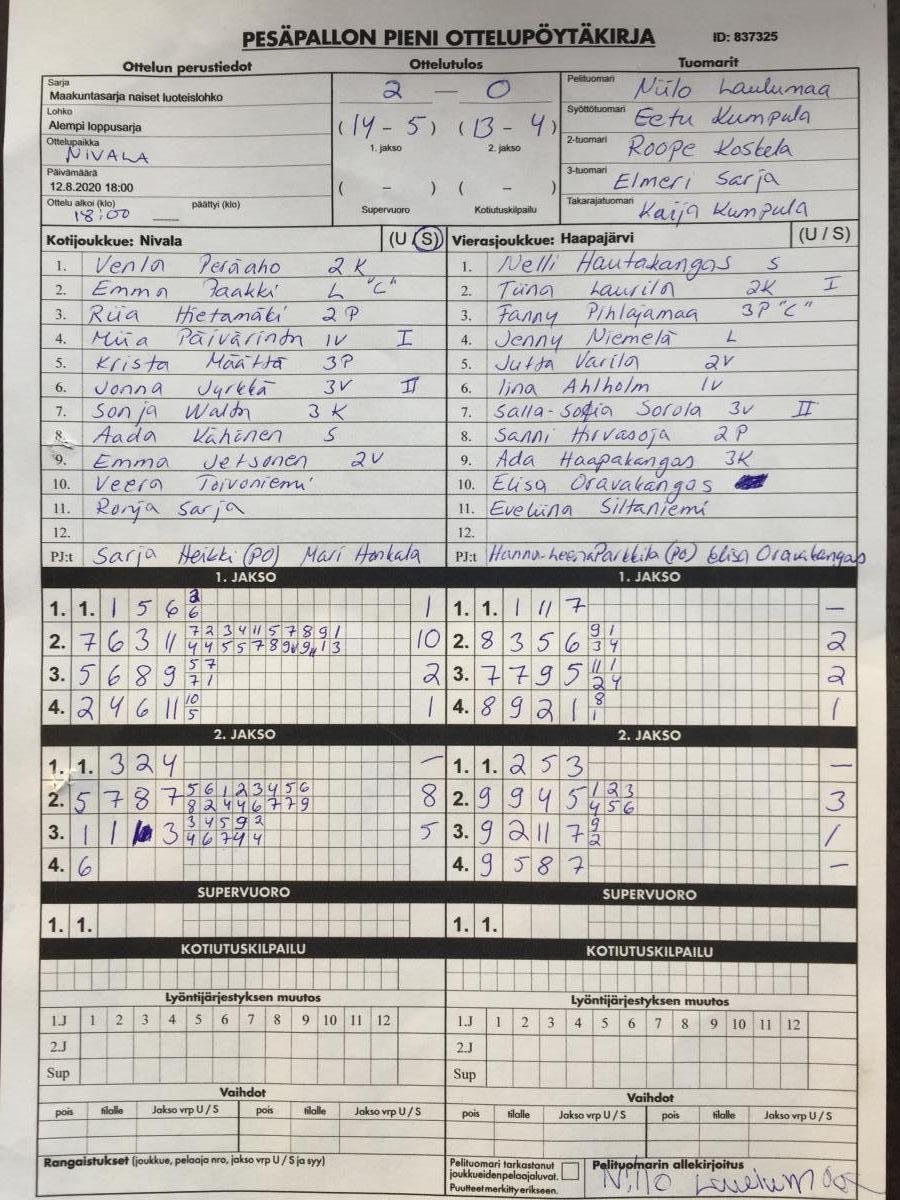 PESÄPALLON PIENI OTTELUPÖYTÄKIRJA ID: 837325
Ottelun perustiedot Ottelutulos Tuomarit
Sarja
Maakuntasarja naiset luoteislohko
Lohko
Alempi loppusarja
Ottelupaikka
NIVALA
Päivämäärä
12.8.2020 18:00
Ottelu alkoi (klo) päättyi (klo)
18:00
2 — 0
(14 - 5) (13 - 4)
1. jakso 2. jakso
( - ) ( - )
Supervuoro Kotiutuskilpailu
Pelituomari Niilo Laulumaa
Syöttötuomari Eetu Kumpula
2-tuomari Roope Koskela
3-tuomari Elmeri Sarja
Takarajatuomari Kaija Kumpula
Kotijoukkue: Nivala (U / S)
1. Venla Peräaho 2K
2. Emma Paakki L "C"
3. Riia Hietamäki 2P
4. Miia Päivärinta 1V I
5. Krista Määttä 3P
6. Jonna Jyrkkä 3V II
7. Sonja Walta 3K
8. Aada Kähönen S
9. Emma Jetsonen 2V
10. Veera Toivoniemi
11. Ronja Sarja
12.
PJ:t Sarja Heikki (PO) Mari Honkala
Vierasjoukkue: Haapajärvi (U / S)
1. Nelli Hautakangas S
2. Tiina Laurila 2K I
3. Fanny Pihlajamaa 3P "C"
4. Jenny Niemelä L
5. Jutta Varila 2V
6. Iina Ahlholm 1V
7. Salla-Sofia Sorola 3V II
8. Sanni Hirvasoja 2P
9. Ada Haapakangas 3K
10. Elisa Oravakangas
11. Eveliina Siltaniemi
12.
PJ:t Hannu-Leena Parkkila (PO) Elisa Oravakangas
1. JAKSO
1. 1. 1 5 6 6 1
2. 7 6 3 11 7 2 3 4 11 5 7 8 9 1 10
4 4 5 5 7 8 9 9 11 13
3. 5 6 8 9 5 7 2
7 1
4. 2 4 6 11 10 1
5
1. JAKSO
1. 1. 1 11 7 —
2. 8 3 5 6 9 1 2
3 4
3. 7 7 9 5 11 1 2
2 4
4. 8 9 2 1 8 1
1
2. JAKSO
1. 1. 3 2 4 —
2. 5 7 8 7 5 6 1 2 3 4 5 6 8
8 2 4 4 6 7 7 9
3. 1 1 3 3 4 5 9 2 5
4 6 7 4 4
4. 6
2. JAKSO
1. 1. 2 5 3 —
2. 9 9 4 5 1 2 3 3
4 5 6
3. 9 2 11 7 9 1
2
4. 9 5 8 7 —
SUPERVUORO
1. 1.
SUPERVUORO
1. 1.
KOTIUTUSKILPAILU
KOTIUTUSKILPAILU
Lyöntijärjestyksen muutos
1.J 1 2 3 4 5 6 7 8 9 10 11 12
2.J
Sup
Lyöntijärjestyksen muutos
1.J 1 2 3 4 5 6 7 8 9 10 11 12
2.J
Sup
Vaihdot
pois tilalle Jakso vrp U / S pois tilalle Jakso vrp U / S
Vaihdot
pois tilalle Jakso vrp U / S pois tilalle Jakso vrp U / S
Rangaistukset (joukkue, pelaaja nro, jakso vrp U / S ja syy)
Pelituomari tarkastanut
joukkueiden pelaajaluvat.
Puutteet merkitty erikseen.
Pelituomarin allekirjoitus
Niilo Laulumaa